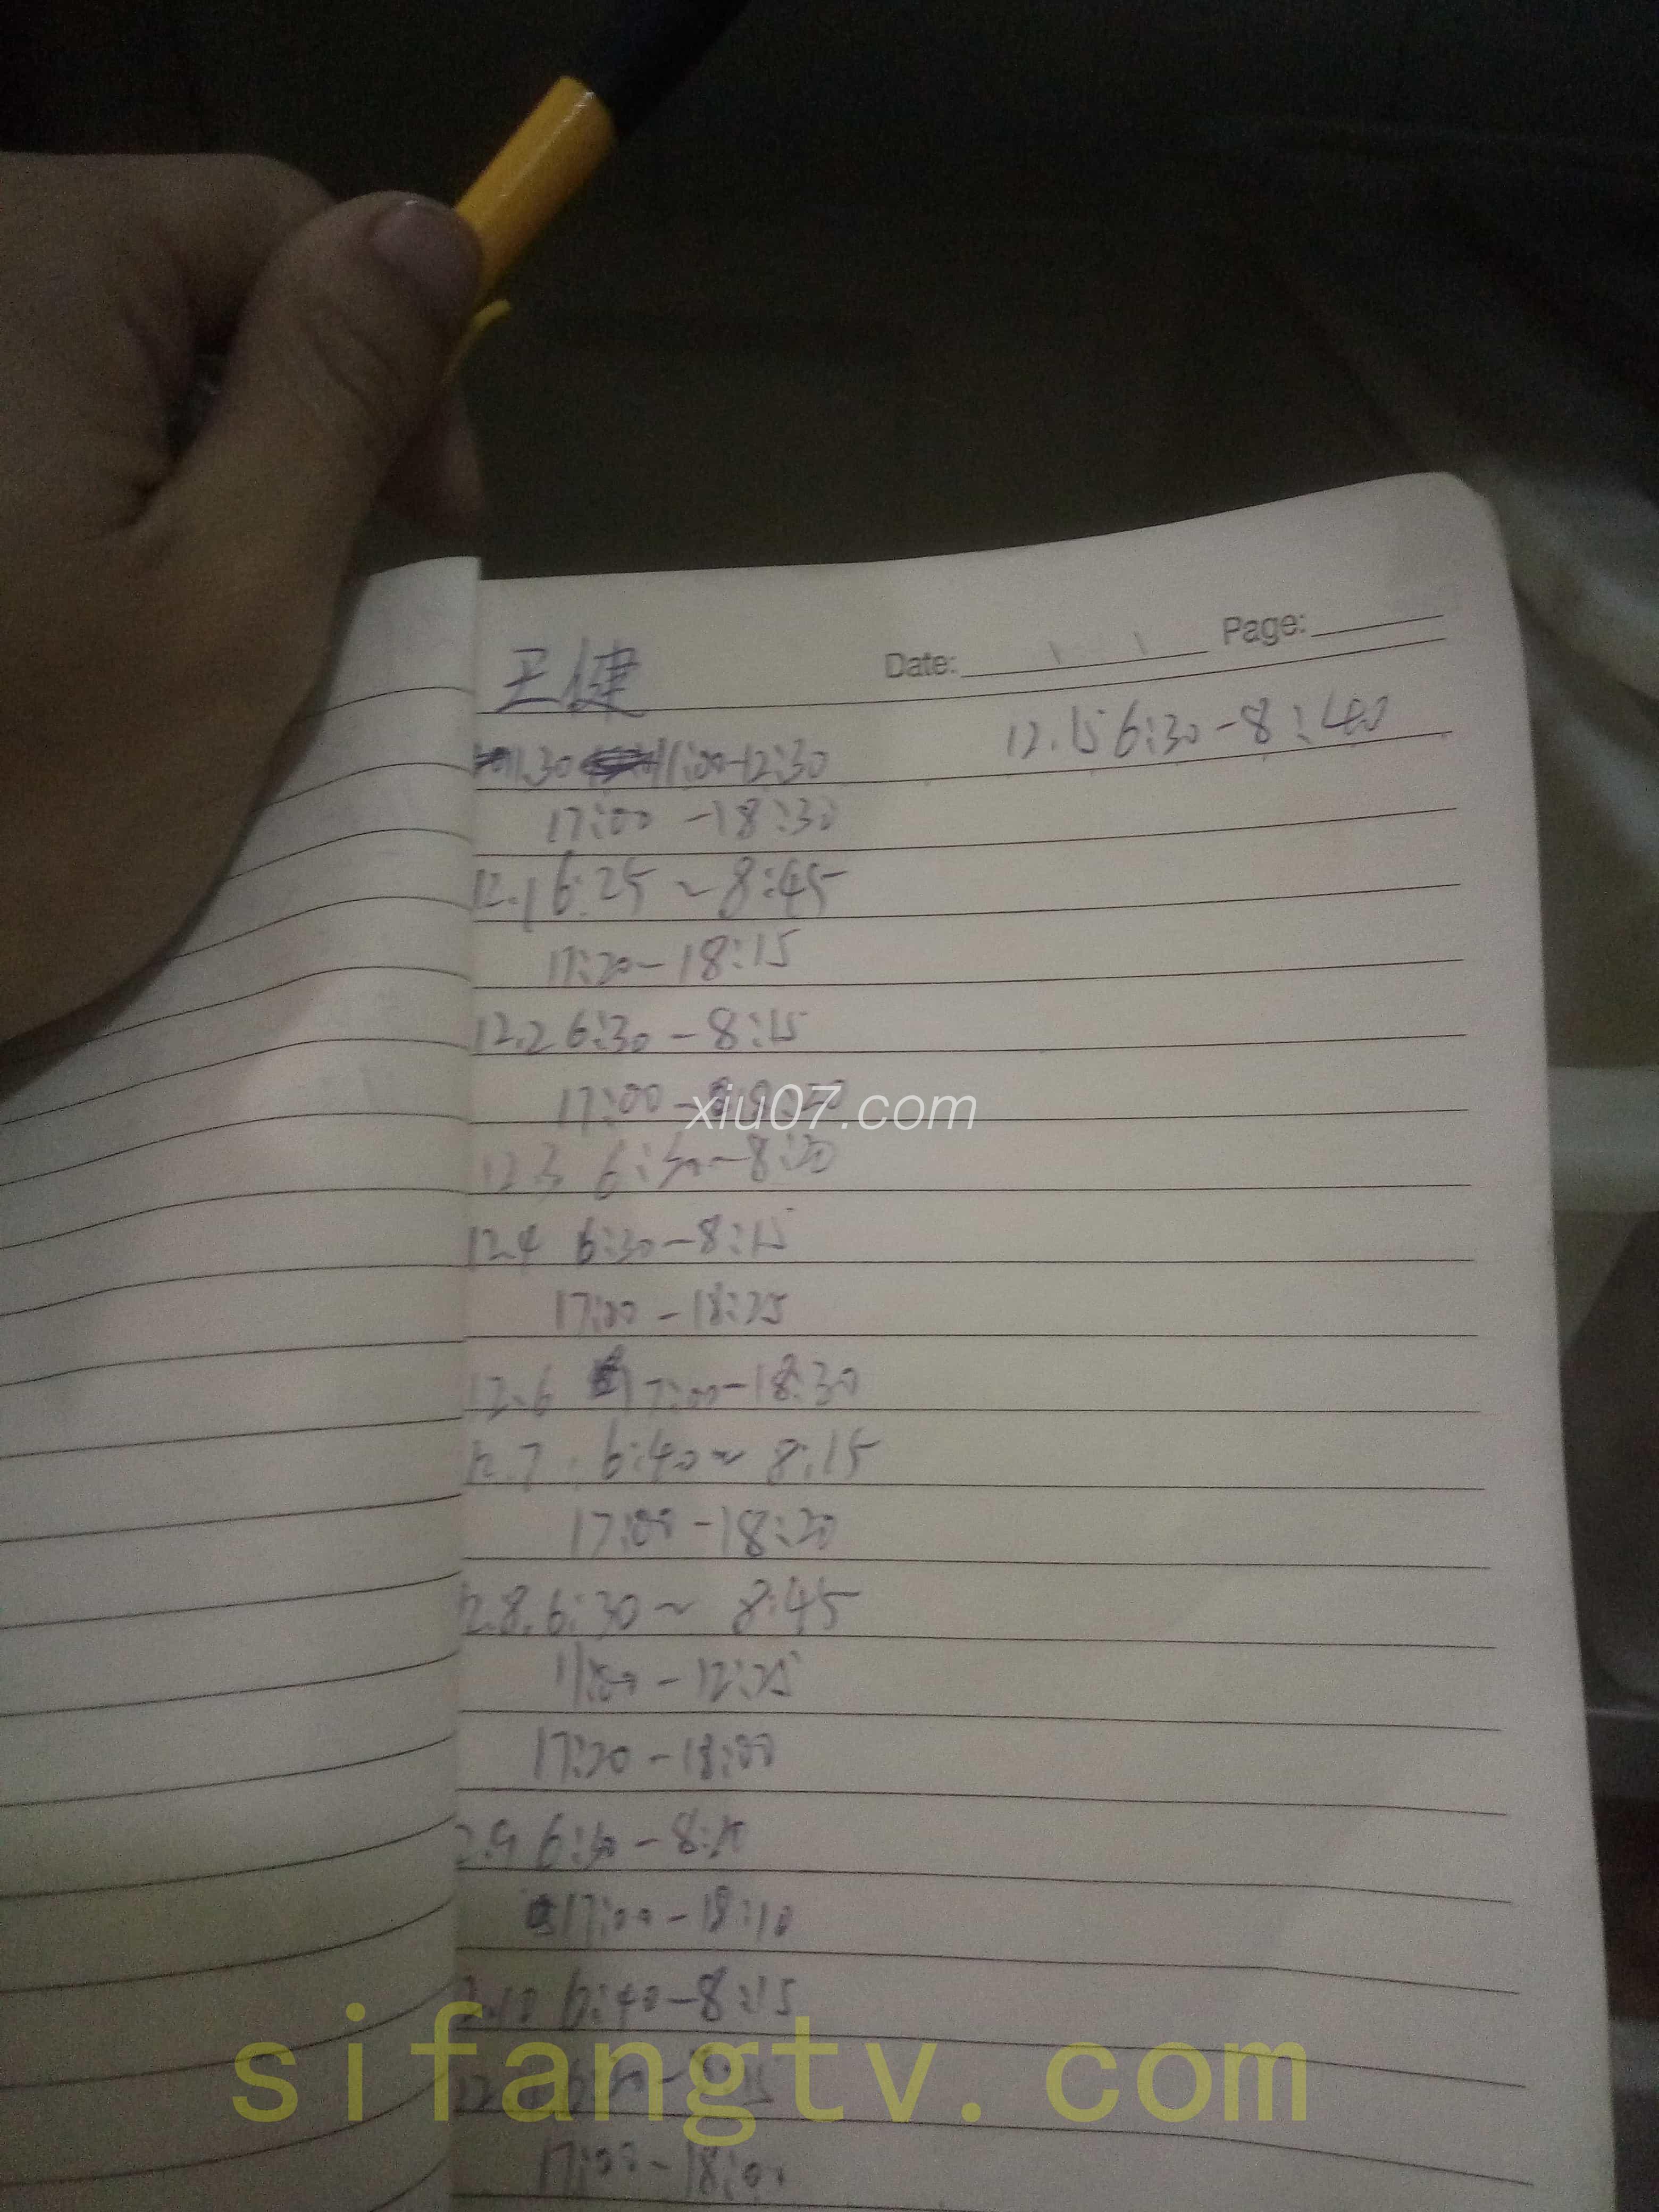 王健
Date: Page:
11.30 11:00-12:30
12.15 6:30-8:40
17:00-18:30
12.1 6:25~8:45
17:20-18:15
12.2 6:30-8:15
17:00-
xiu07.com
12.3 6:30-8:20
12.4 6:30-8:15
17:00-18:25
12.6 17:00-18:30
12.7. 6:40~8:15
17:00-18:20
12.8. 6:30~8:45
11:00-12:25
17:20-18:00
2.9 6:30-8:10
17:00-18:10
2.10 6:40-8:15
sifangtv.com
17:00-18:00